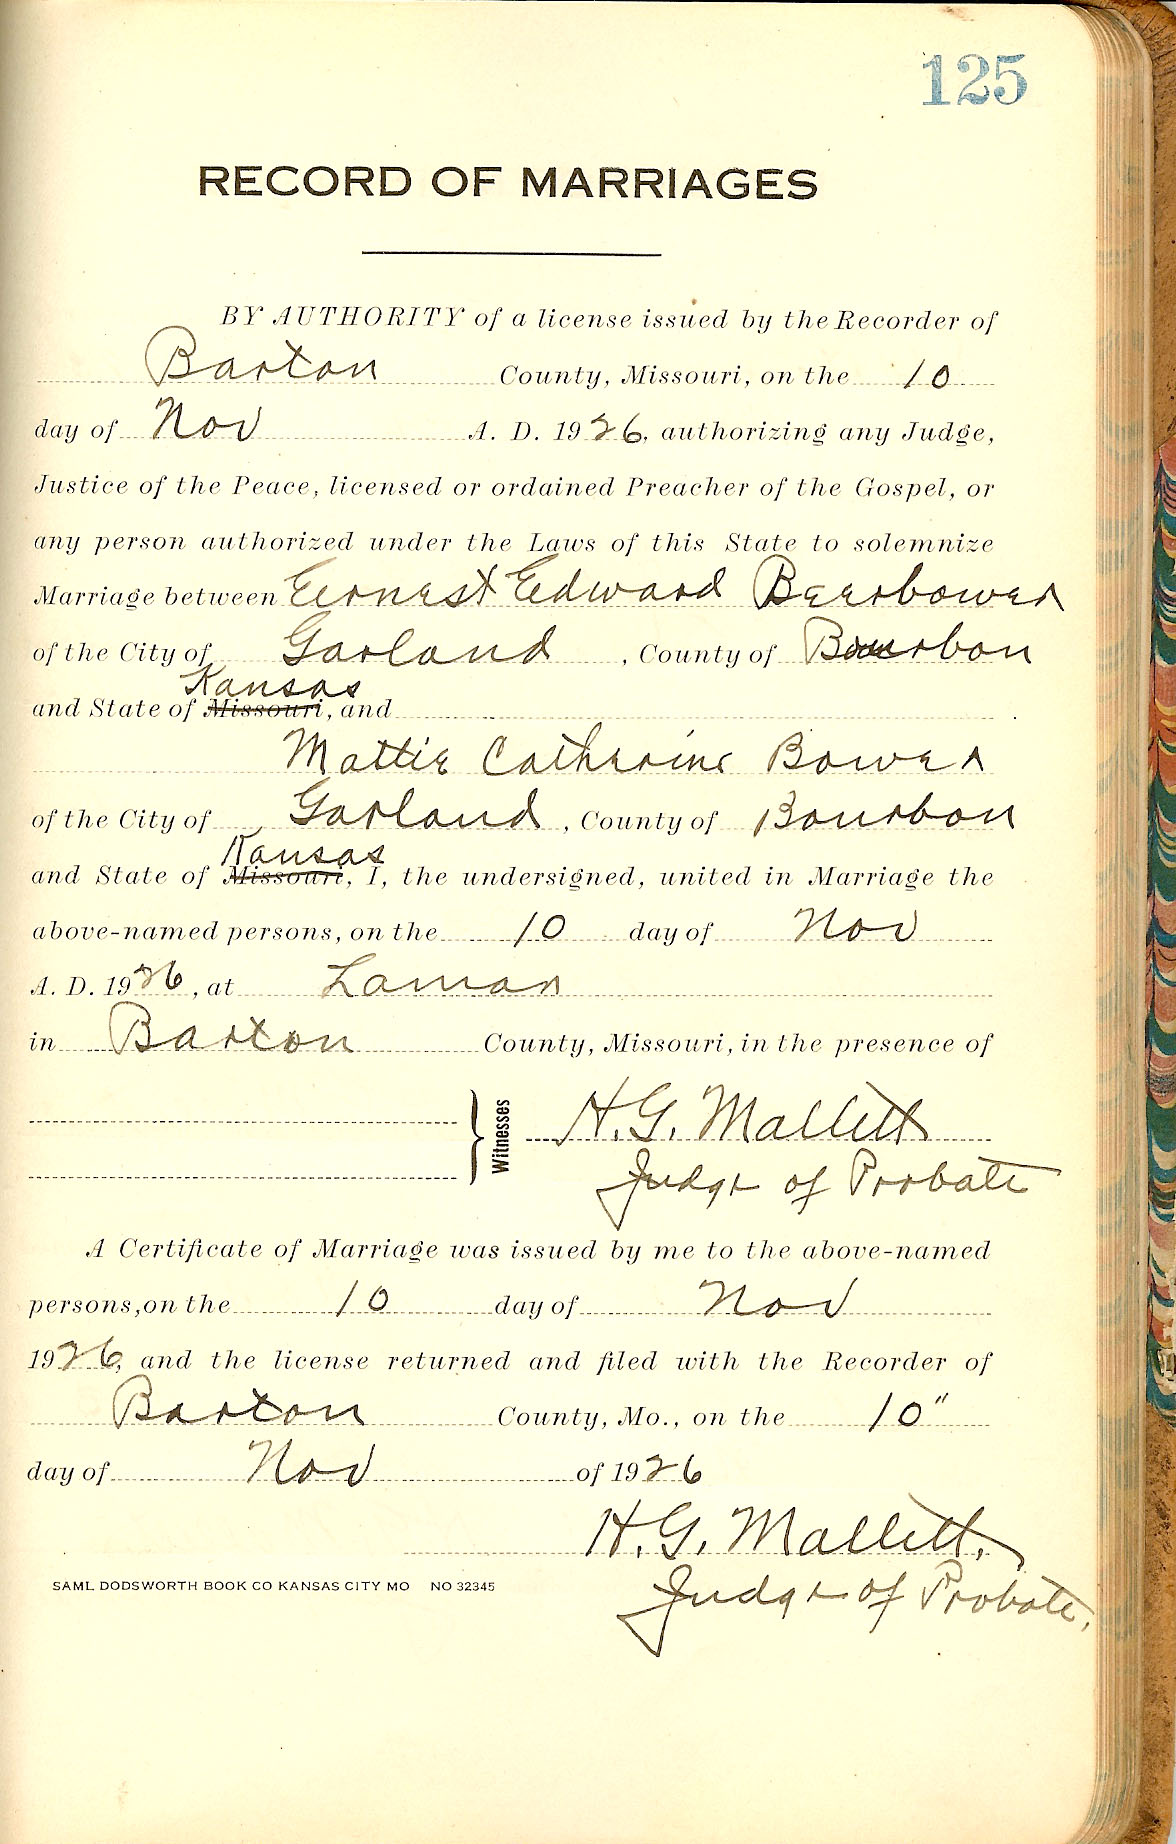 125
RECORD OF MARRIAGES
BY AUTHORITY of a license issued by the Recorder of
Barton County, Missouri, on the 10
day of Nov A. D. 1926, authorizing any Judge,
Justice of the Peace, licensed or ordained Preacher of the Gospel, or
any person authorized under the Laws of this State to solemnize
Marriage between Ernest Edward Beerbower
of the City of Garland, County of Bourbon
Kansas
and State of Missouri, and
Mattie Catherine Bower
of the City of Garland, County of Bourbon
Kansas
and State of Missouri, I, the undersigned, united in Marriage the
above-named persons, on the 10 day of Nov
A. D. 1926, at Lamar
in Barton County, Missouri, in the presence of
Witnesses H. G. Mallett
Judge of Probate
A Certificate of Marriage was issued by me to the above-named
persons, on the 10 day of Nov
1926, and the license returned and filed with the Recorder of
Barton County, Mo., on the 10"
day of Nov of 1926
H. G. Mallett.
SAML DODSWORTH BOOK CO KANSAS CITY MO NO 32345
Judge of Probate.